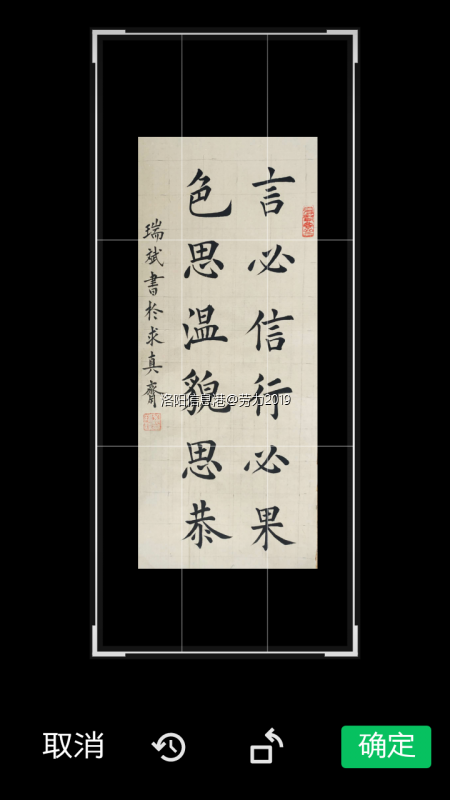 言必信行必果
色思温貌思恭
瑞斌書於求真齋
洛阳信息港@劳力2019
取消
确定